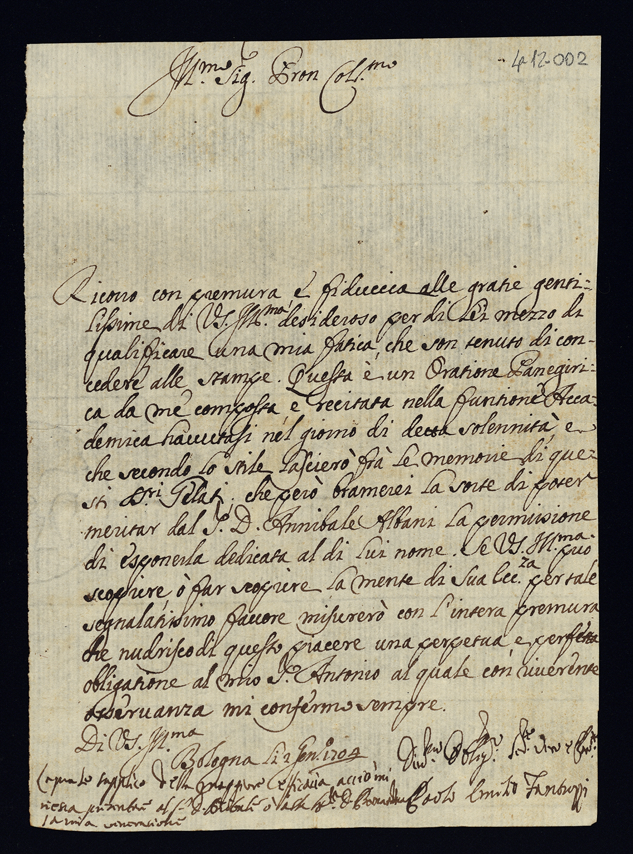 4-12-002
Ill.mo Sig. Pron Col.mo
Ricorro con premura e fiduccia alle gratie genti=
lissime di VS. Ill.ma, desideroso per di Lei mezzo di
qualificare una mia fatica, che son tenuto di con=
cedere alle stampe. Questa è un Oratione Panegiri=
ca da mè composta e recitata nella funtione Acca=
demica havutasi nel giorno di detta solennità, e
che secondo lo stile lascierò frà le memorie di que=
sti Gelati, che però bramerei la sorte di poter
meritar dal S. D. Annibale Albani la permissione
di esponerla dedicata al di lui nome. Se VS. Ill.ma può
scoprire ò far scoprire la mente di Sua Ecc.za per tale
segnalatissimo favore misurerò con l'intera premura
che nudrisco di questo piacere una perpetua e perfetta
obligatione al mio S.r Antonio al quale con riverente
osservanza mi confermo sempre.
Di VS. Ill.ma
Bologna li 2 Gen.o 1704
della maggiore efficacia acciò mi
Paolo Emilio Fantuzzi
la mia